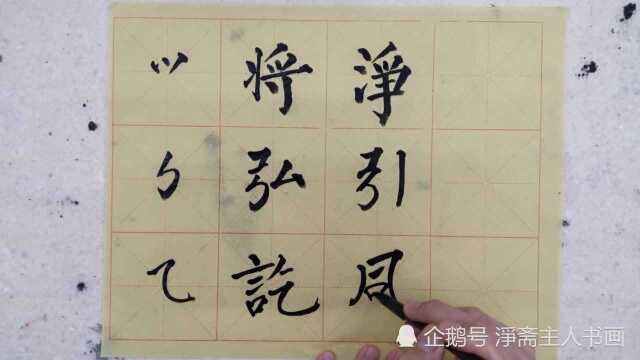 将 淨
弘 引
乙 訖 同
企鹅号 淨斋主人书画